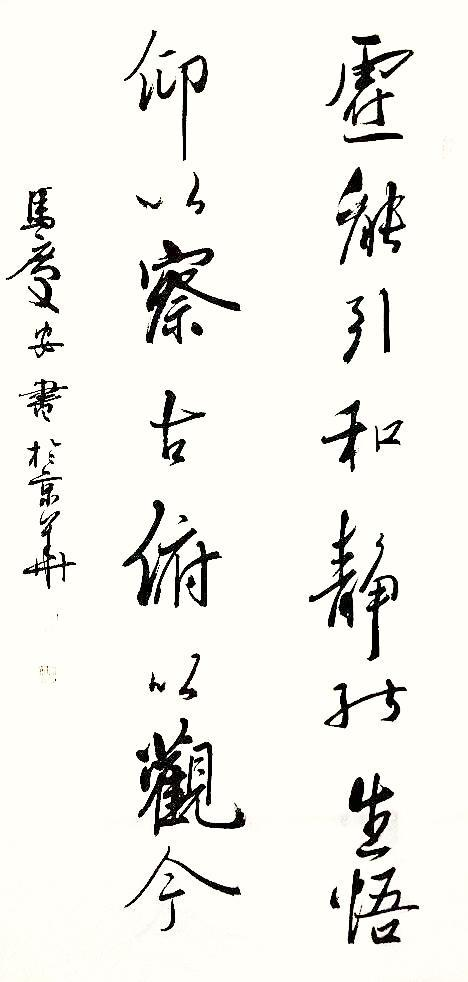 虛能引和靜能生悟
仰以察古俯以觀今
馬慶安書於京華